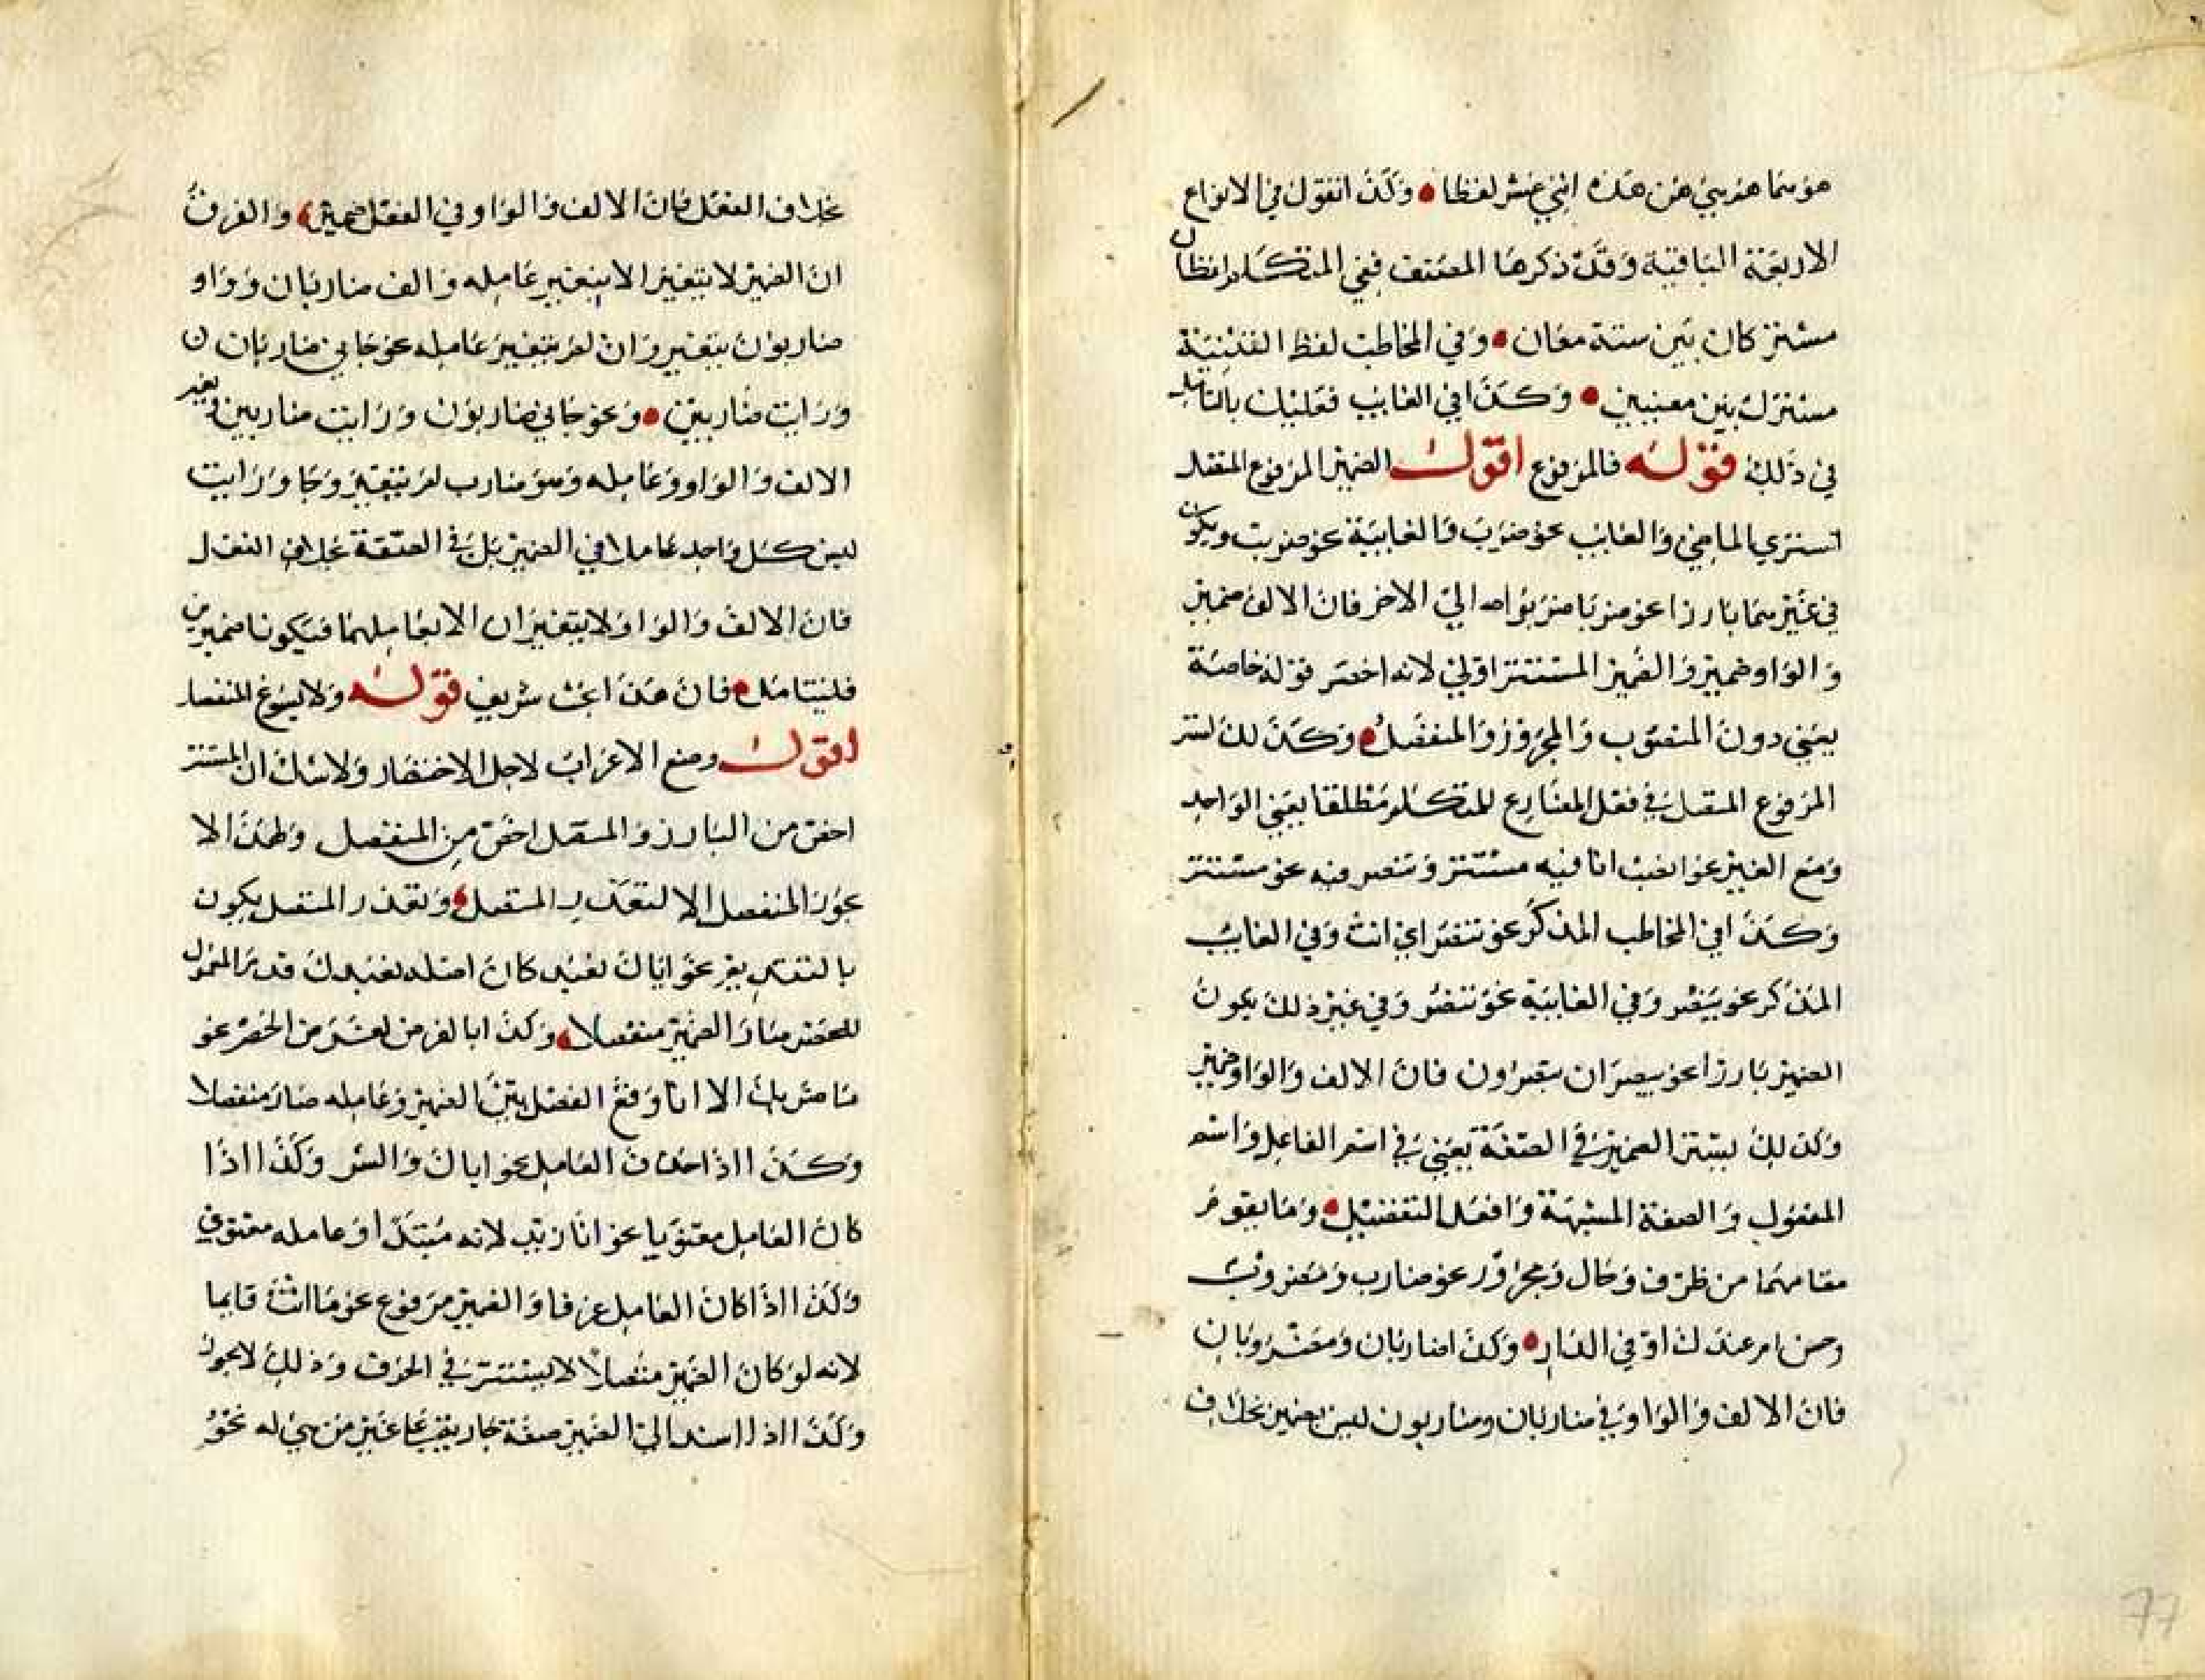 هو هما هم هي هن هذه اثني عشر لفظا وكذا نقول في الانواع
الاربعة الباقية وقد ذكرها المصنف ففي المتكلم لفظان
مشترك كان بين ستة معان وفي المخاطب لفظ التثنية
مشترك بين معنيين وكذا في الغايب فعليك بالتامل
في ذلك قوله فالمرفوع اقول الضمير المرفوع المتصل
استتر في الماضي والغايب نحو ضرب والغايبة نحو ضربت ويكون
في غيرهما بارزا نحو ضربا ضربوا اه الي الاخر فان الالف ضمير
والواو ضمير والضمير المستتر اولي لانه اخصر قوله خاصة
يعني دون المنصوب والمجرور والمنفصل وكذلك استتر
المرفوع المتصل في فعل المضارع للمتكلم مطلقا يعني الواحد
ومع الغير نحو انصر انا فيه مستتر وننصر فيه نحن مستتر
وكذا في المخاطب المذكر نحو تنصر اي انت وفي الغايب
المذكر نحو ينصر وفي الغايبة نحو تنصر وفي غير ذلك يكون
الضمير بارزا نحو ينصران ينصرون فان الالف والواو ضمير
وكذلك يستتر الضمير في الصفة يعني في اسم الفاعل واسم
المفعول والصفة المشبهة وافعل التفضيل وما يقوم
مقامهما من ظرف وحال ومجرور نحو ضارب ومضروب
وحسن ام عندك او في الدار وكذا ضاربان ومضروبان
فان الالف والواو في ضاربان وضاربون ليس بضمير بخلاف
بخلاف الفعل فان الالف والواو في الفعل ضمير والفرق
ان الضمير لا يتغير الا بتغير عامله والف ضاربان وواو
ضاربون يتغير وان لم يتغير عامله نحو جاني ضاربان
ورايت ضاربين ونحو جاني ضاربون ورايت ضاربين تغير
الالف والواو وعامله وهو ضارب لم يتغير وجا ورايت
ليس كل واحد عاملا في الضمير بل في الصفة بخلاف الفعل
فان الالف والواو لا يتغيران الا بعاملهما فيكونا ضميرين
فليتامل فان هذا بحث شريف قوله ولا يسوغ المنفصل
اقول وضع الاعراب لاجل الاختصار ولا شك ان المستتر
اخف من البارز والمتصل اخف من المنفصل ولهذا لا
يجوز المنفصل الا لتعذر المتصل وتعذر المتصل يكون
بالتقديم نحو اياك نعبد كان اصله نعبدك قدم المفعول
للحصر صار الضمير منفصلا وكذا بالفرض لغرض من الحصر نحو
ما ضربك الا انا وقع الفصل بين الضمير وعامله صار منفصلا
وكذا اذا حذف العامل نحو اياك والشر وكذا اذا
كان العامل معنويا نحو انا زيد لانه مبتدا وعامله معنوي
وكذا اذا كان العامل حرفا والضمير مرفوع نحو ما انت قايما
لانه لو كان الضمير متصلا لاستتر في الحرف وذلك لا يجوز
وكذا اذا اسند الي الضمير صفة جارية علي غير من هي له نحو
77